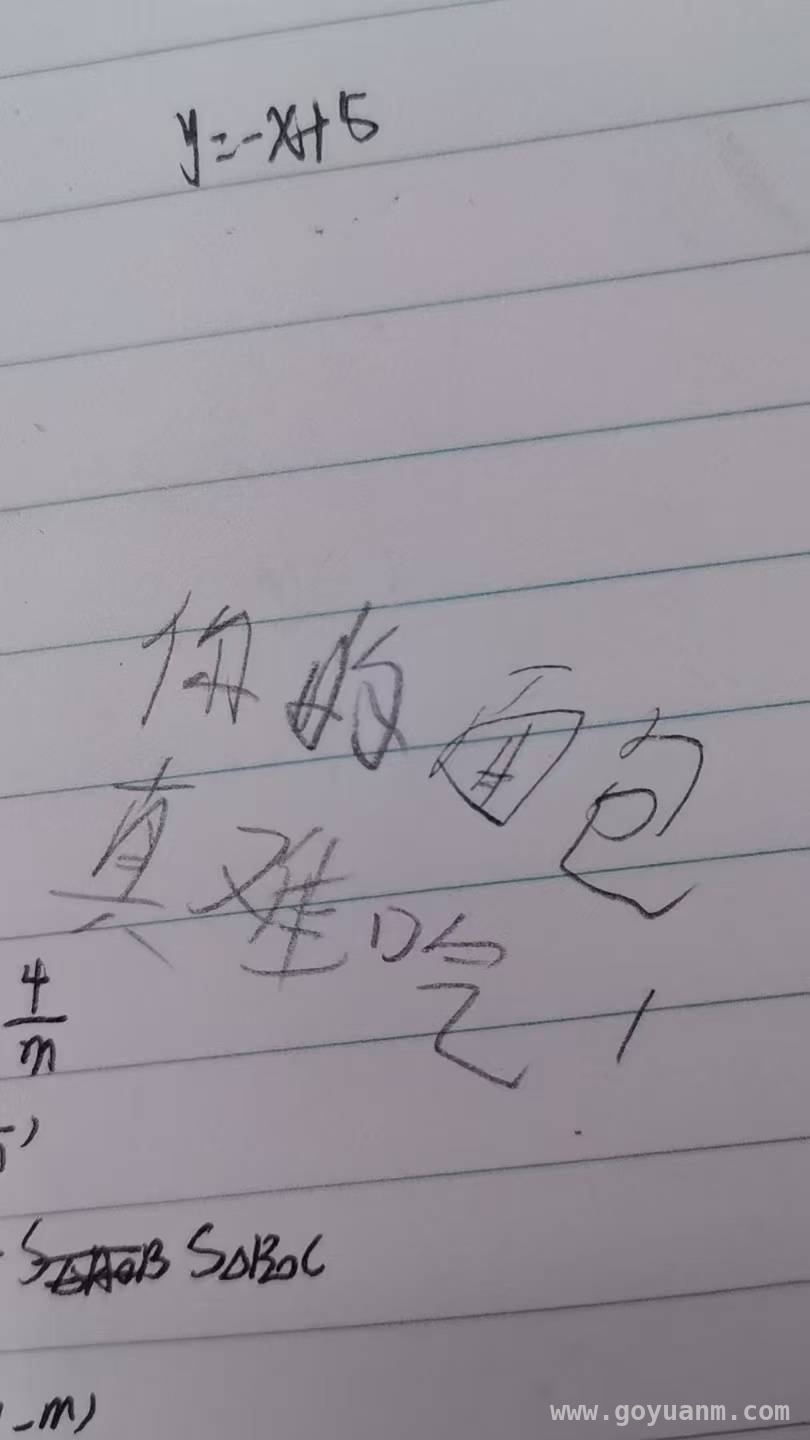 y=-x+5
你的面包
真难吃!
4/m
S△AOB S△BOC
-m)
www.goyuanm.com